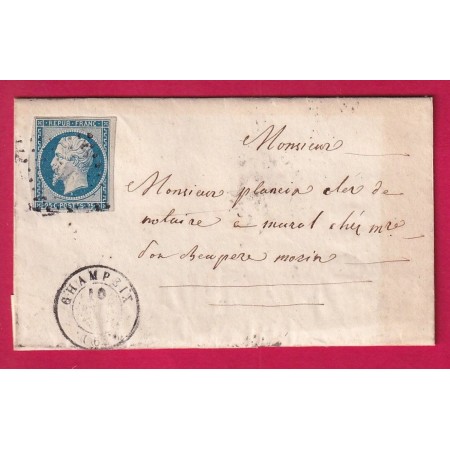 REPUB. FRANC.
25 c. POSTES 25 c.
Monsieur
Monsieur plancin cler de
notaire à murol chéz mr
son beaupère morin
CHAMPEIX
10